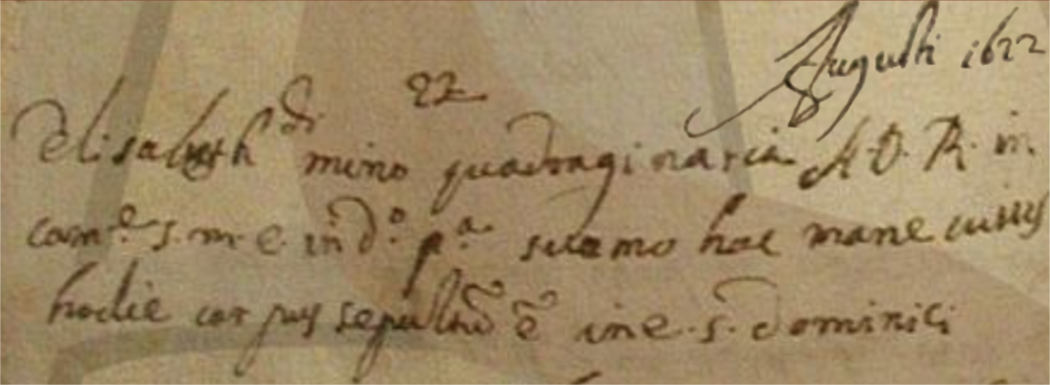 Augusti 1622
22
Elisabeth di mino quadraginaria A. D. R. in
com.e s. m. e. in d.o p.a suamo hac mane cuius
hodie corpus sepultũ ẽ in e. s. dominici